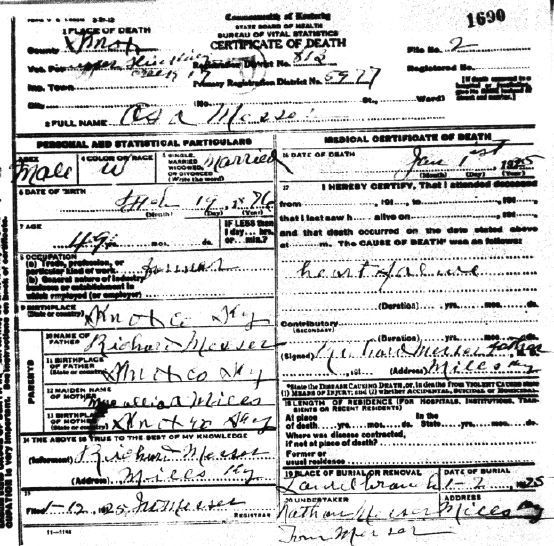 Commonwealth of Kentucky
STATE BOARD OF HEALTH
BUREAU OF VITAL STATISTICS
CERTIFICATE OF DEATH
1690
1 PLACE OF DEATH
County Knox
File No. 2
Vot. Pct.
Registration District No.
Registered No.
Inc. Town
Primary Registration District No. 5977
City (No. St., Ward)
2 FULL NAME Asa Messer
PERSONAL AND STATISTICAL PARTICULARS
SEX Male
4 COLOR OR RACE W
5 SINGLE, MARRIED, WIDOWED, OR DIVORCED (Write the word) Married
6 DATE OF BIRTH
19
(Month) (Day) (Year)
7 AGE
49 yrs. mos. ds.
IF LESS than 1 day, hrs. or min.?
8 OCCUPATION
(a) Trade, profession, or particular kind of work. Farmer
(b) General nature of industry, business or establishment in which employed (or employer)
9 BIRTHPLACE
(State or country) Knox Co Ky
PARENTS
10 NAME OF FATHER Richard Messer
11 BIRTHPLACE OF FATHER (State or country) Knox Co Ky
12 MAIDEN NAME OF MOTHER Mills
13 BIRTHPLACE OF MOTHER (State or country) Knox Ky
14 THE ABOVE IS TRUE TO THE BEST OF MY KNOWLEDGE
(Informant) Richard Messer
(Address) Mills Ky
15
Filed 1-12, 1925 Messer
REGISTRAR
11-1146
MEDICAL CERTIFICATE OF DEATH
16 DATE OF DEATH
Jan 1st 1925
(Month) (Day) (Year)
17 I HEREBY CERTIFY, That I attended deceased
from , 191 , to , 191 ,
that I last saw h alive on , 191 ,
and that death occurred on the date stated above
at m. The CAUSE OF DEATH* was as follows:
heart failure
(Duration) yrs. mos. ds.
Contributory
(SECONDARY)
(Duration) yrs. mos. ds.
(Signed) Richard Messer father
, 191 (Address) Mills Ky
*State the DISEASE CAUSING DEATH, or, in deaths from VIOLENT CAUSES state (1) MEANS OF INJURY; and (2) whether ACCIDENTAL, SUICIDAL or HOMICIDAL.
18 LENGTH OF RESIDENCE (FOR HOSPITALS, INSTITUTIONS, TRANSIENTS OR RECENT RESIDENTS)
At place of death yrs. mos. ds. In the State yrs. mos. ds.
Where was disease contracted, if not at place of death?
Former or usual residence
19 PLACE OF BURIAL OR REMOVAL
DATE OF BURIAL
1-2 1925
20 UNDERTAKER
ADDRESS
Nathan Messer Mills Ky
Tom Messer